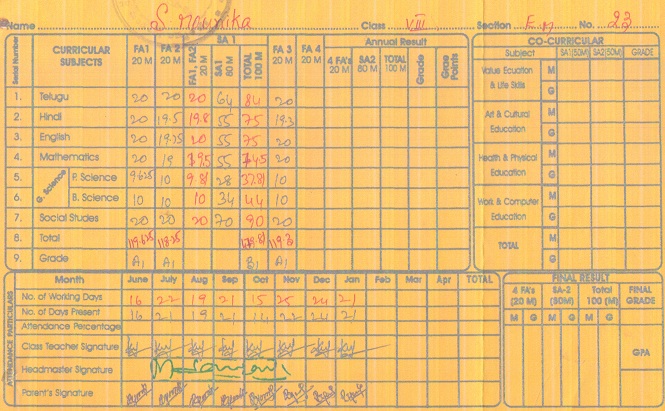 Name S Mounika Class VIII Section E.M No. 23
Serial Number CURRICULAR SUBJECTS FA1 20 M FA 2 20 M SA 1 FA1, FA2 20 M SA1 80 M TOTAL 100 M FA 3 20 M FA 4 20 M Annual Result 4 FA's 20 M SA2 80 M TOTAL 100 M Grade Grae Points
1. Telugu 20 20 20 64 84 20
2. Hindi 20 19.5 19.8 55 75 19.3
3. English 20 19.75 20 55 75 20
4. Mathematics 20 19 19.5 55 74.5 20
G. Science
5. P. Science 9.625 10 9.81 28 37.81 10
6. B. Science 10 10 10 34 44 10
7. Social Studes 20 20 20 70 90 20
8. Total 119.625 118.25 119.3
9. Grade A1 A1 B1 A1
CO-CURRICULAR
Subject SA1(50M) SA2(50M) GRADE
Value Ecuation & Life Skills M G
Art & Cultural Education M G
Health & Physical Education M G
Work & Computer Education M G
TOTAL M G
ATTENDANCE PARTICULARS
Month June July Aug Sep Oct Nov Dec Jan Feb Mar Apr TOTAL
No. of Working Days 16 22 19 21 15 25 24 21
No. of Days Present 16 21 19 21 14 22 24 21
Attendance Percentage
Class Teacher Signature
Headmaster Signature
Parent's Signature
FINAL RESULT
4 FA's (20 M) SA-2 (80M) Total 100 (M) FINAL GRADE
M G M G M G
GPA